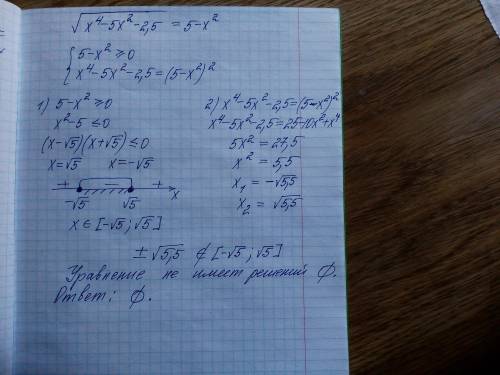 √(x⁴-5x²-2,5) = 5-x²
{ 5-x² ≥ 0
x⁴-5x²-2,5=(5-x²)²
1) 5-x² ≥ 0
x²-5 ≤ 0
(x-√5)(x+√5) ≤ 0
x=√5 x=-√5
+ - + x
-√5 √5
x ∈ [-√5; √5]
2) x⁴-5x²-2,5=(5-x²)²
x⁴-5x²-2,5=25-10x²+x⁴
5x² = 27,5
x² = 5,5
x₁ = -√5,5
x₂ = √5,5
± √5,5 ∉ [-√5; √5]
Уравнение не имеет решений ∅.
Ответ: ∅.